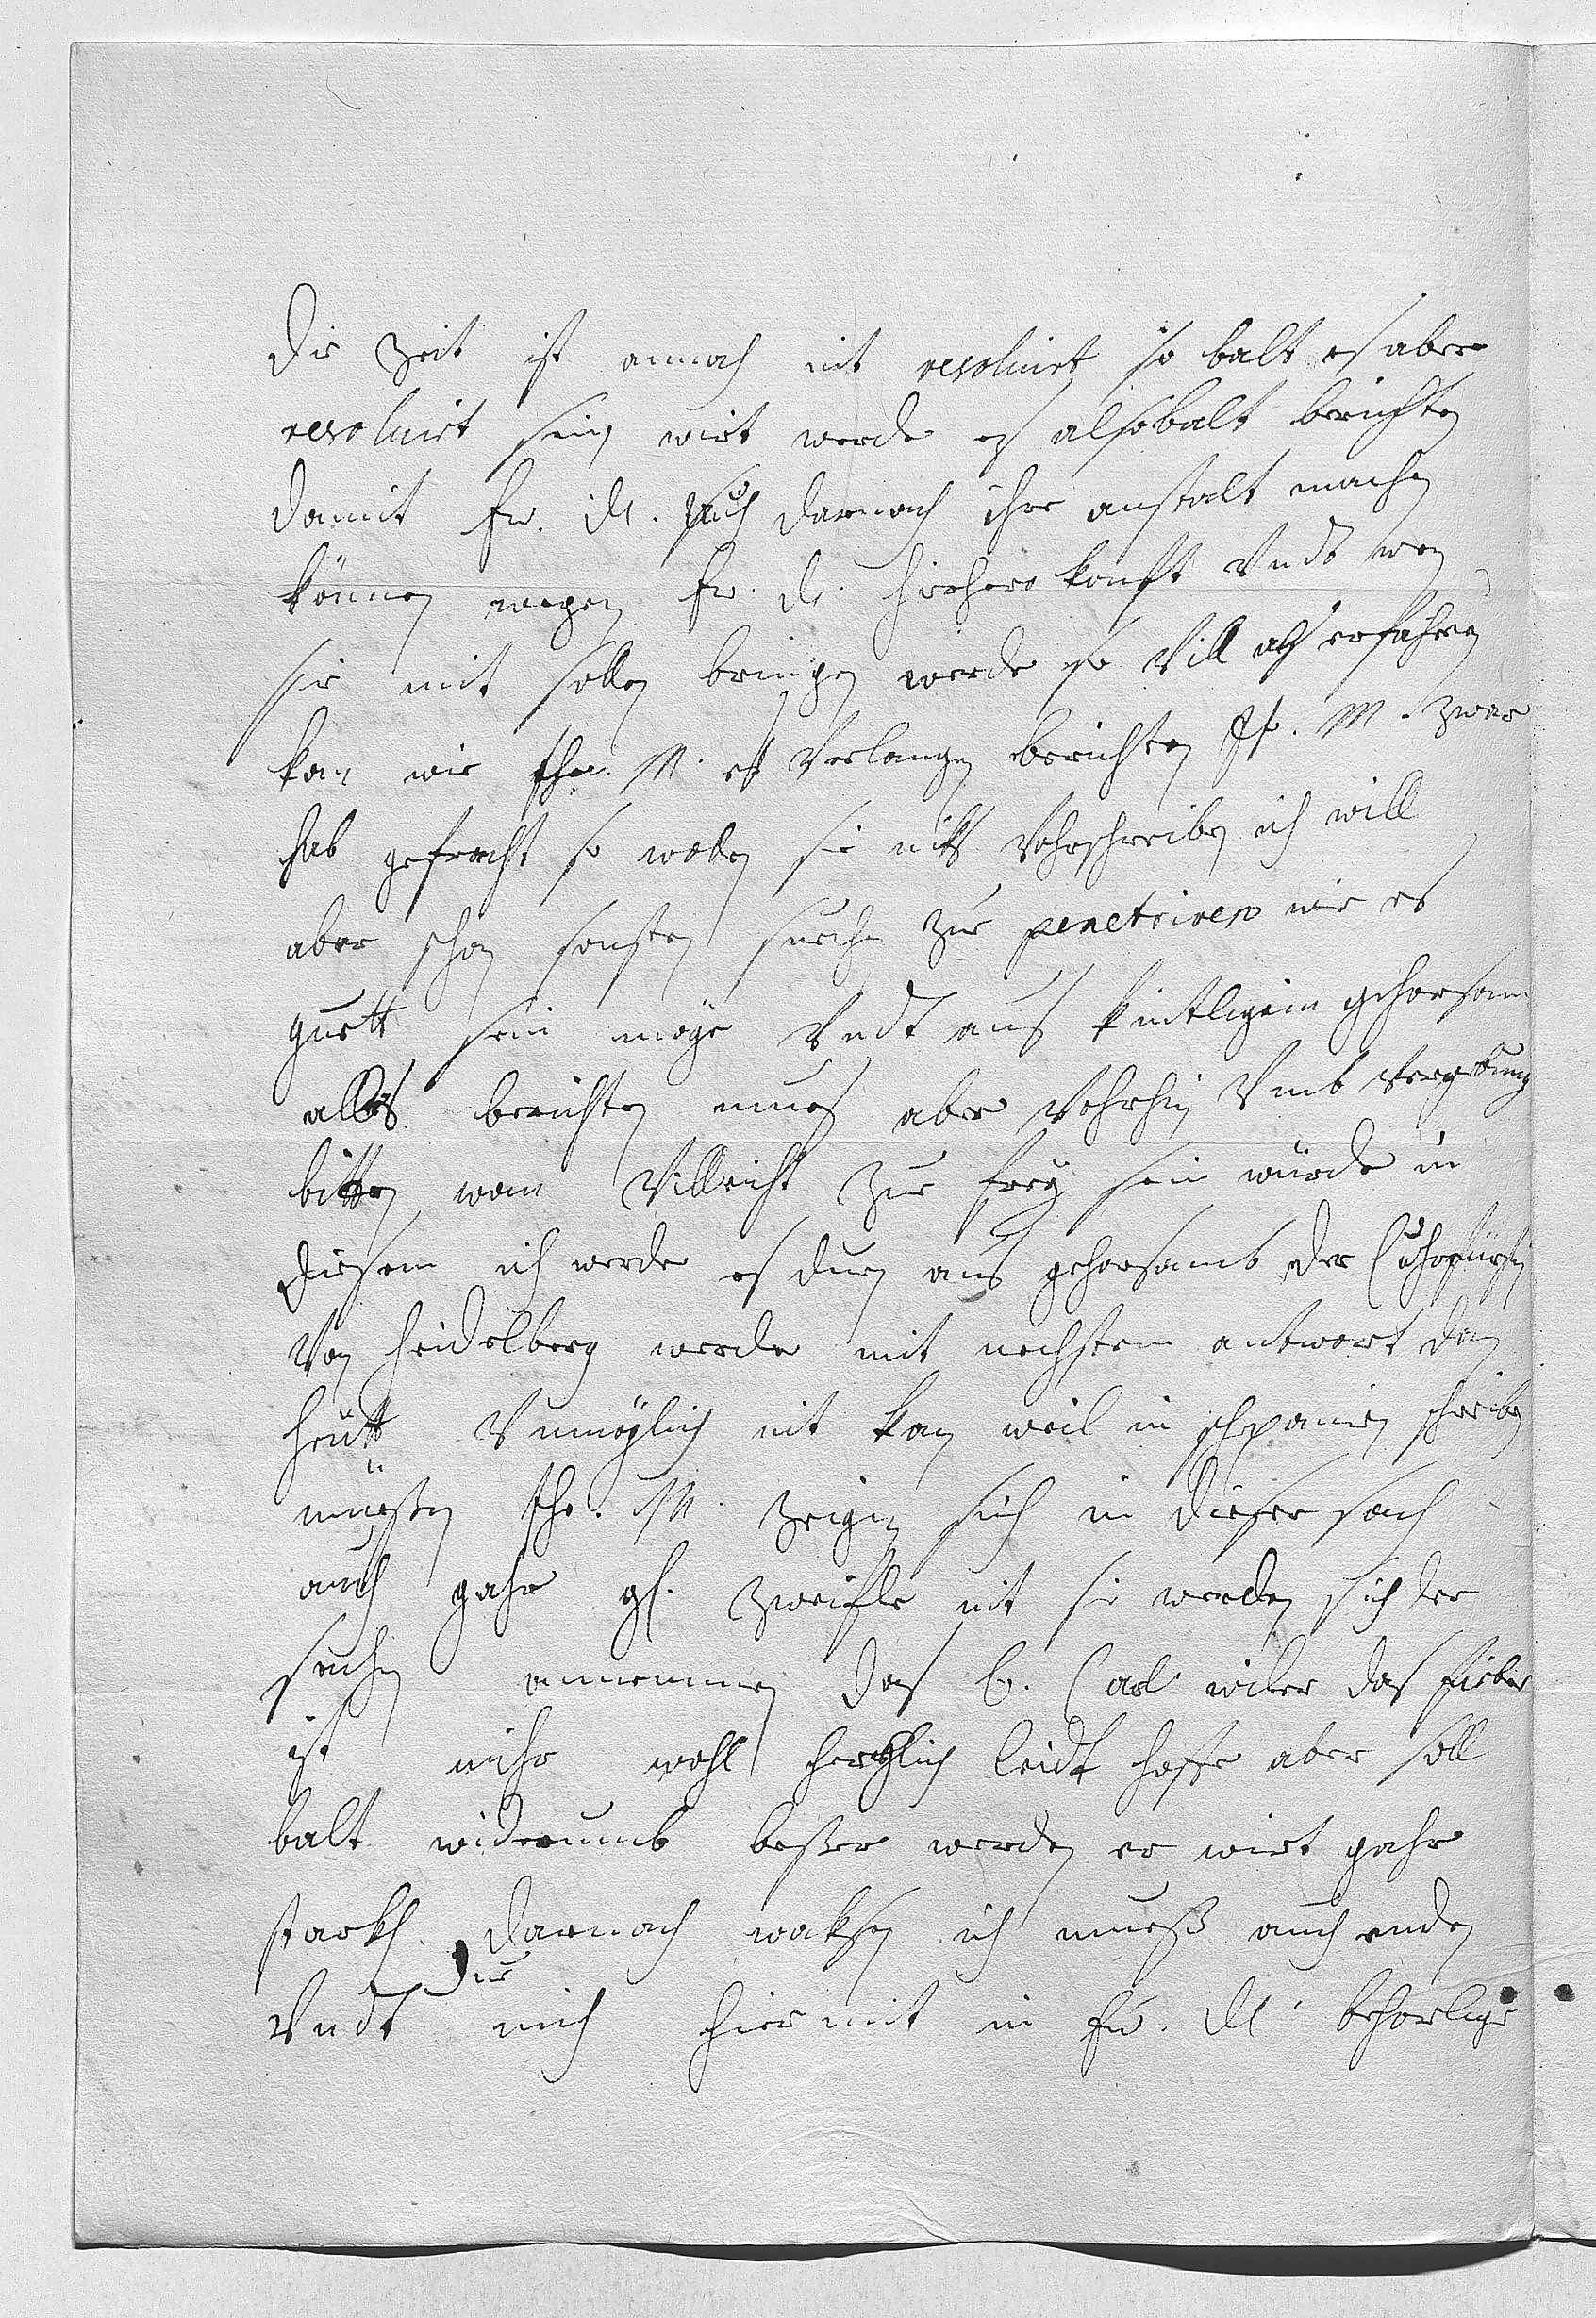 die Zeit ist annoch nit resolvirt so balt es aber
resolvirt sein wirt werde es alsobalt berichten
damit Ew. Dl. sich darnach ihre anstalt machen
können wegen Ew. Dl. hirhero konfft undt wen
sie mit sollen bringen werde so vill als erfahren
kan wie Ihr. M. es verlangen berichten Ih. M. zwar
hab gefracht so wollen sie nihts vohrschreiben ich will
aber schon sonsten suechen zue penetriren wie es
guett sein möge undt aus kintligem gehorsam
alles berichten mues aber vohrhin umb vergebung
bitten wan villeicht zue frey sein würde in
diesem ich werde es duen aus gehorsamb der Cuhrfürstin
von Heidelberg werde mit nechstem antwort dan
heütt unmöglich nit kan weil in schpanien schreiben
müeßen Ihr. M. zeigen sich in dieser sach
auch gahr gl. zweifle nit sie werden sich der
sachen annemmen das b. Carl wider das fieber
ist mihr wohl hertzlich leidt hoffe aber soll
balt widerumb beßer werden er wirt gahr
starkh darnach waksen ich mueß auch enden
undt due mich hiermit in Ew. Dl. beharlige